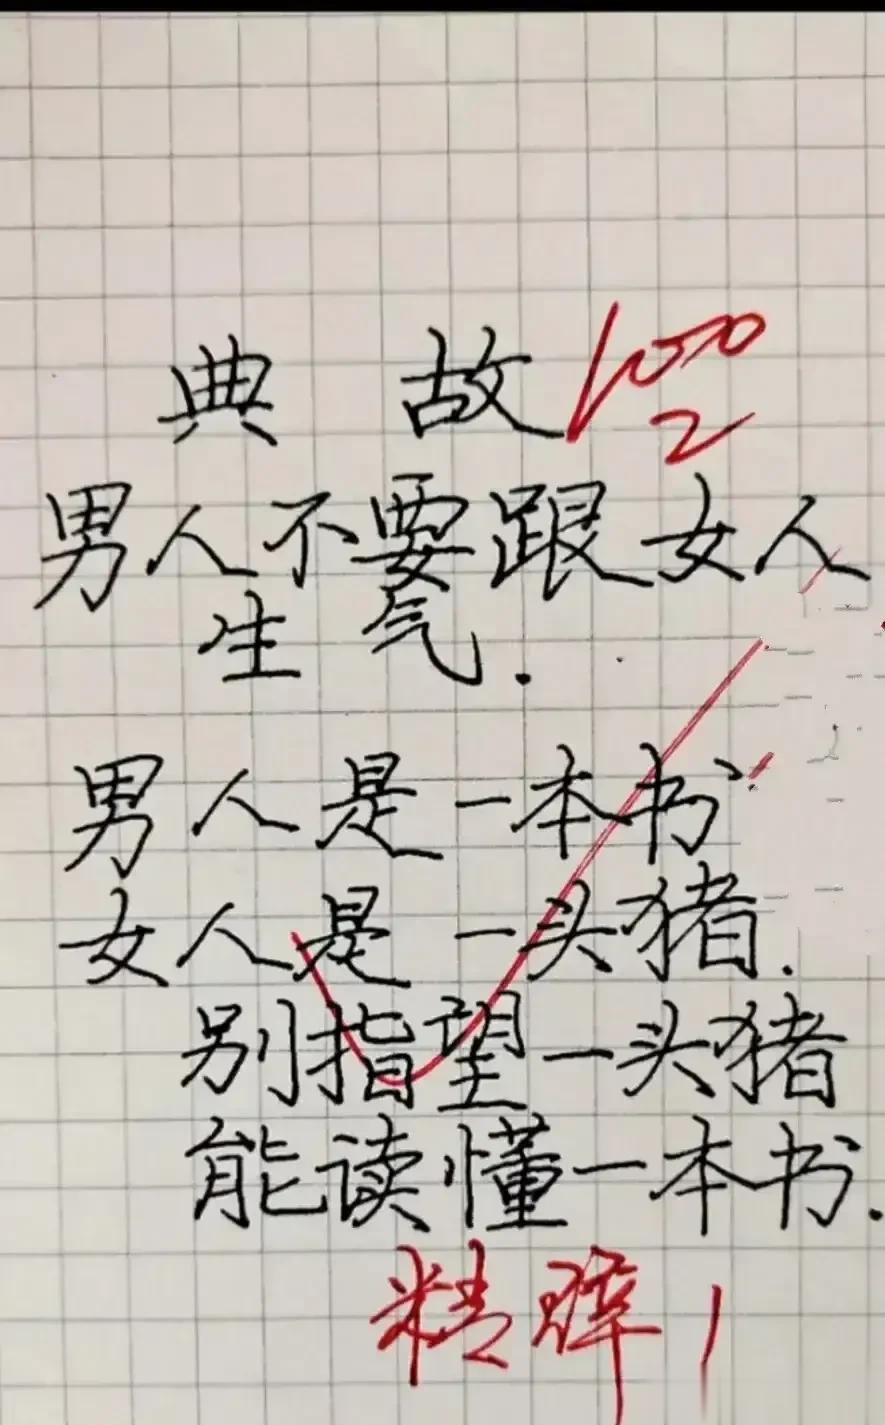 典故 100
2
男人不要跟女人
生气.
男人是一本书
女人是一头猪.
别指望一头猪
能读懂一本书.
精辟!